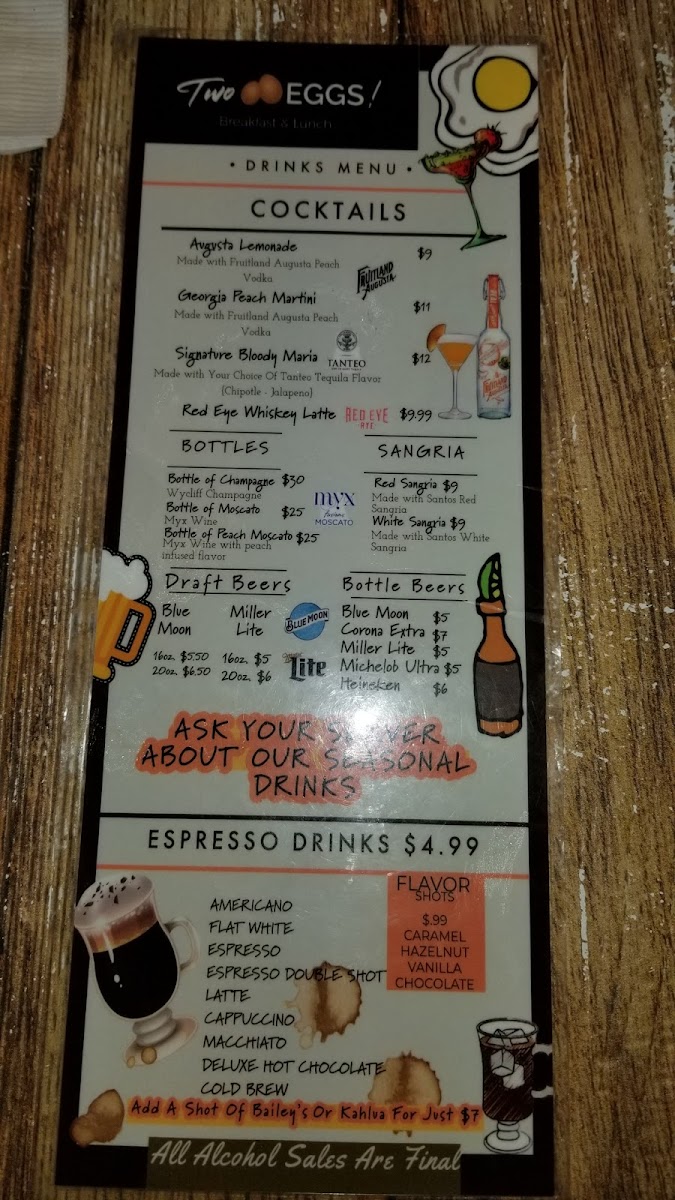 Two EGGS!
Breakfast & Lunch
• DRINKS MENU •
COCKTAILS
Augusta Lemonade $9
Made with Fruitland Augusta Peach
Vodka
FRUITLAND
AUGUSTA
Georgia Peach Martini $11
Made with Fruitland Augusta Peach
Vodka
Signature Bloody Maria $12
TANTEO
Made with Your Choice Of Tanteo Tequila Flavor
(Chipotle - Jalapeno)
Red Eye Whiskey Latte RED EYE $9.99
RYE
BOTTLES
Bottle of Champagne $30
Wycliff Champagne
Bottle of Moscato $25
Myx Wine
Bottle of Peach Moscato $25
Myx Wine with peach
infused flavor
myx
fusions
MOSCATO
SANGRIA
Red Sangria $9
Made with Santos Red
Sangria
White Sangria $9
Made with Santos White
Sangria
Draft Beers
Blue
Moon
16oz. $5.50
20oz. $6.50
Miller
Lite
16oz. $5
20oz. $6
BLUE MOON
Lite
Bottle Beers
Blue Moon $5
Corona Extra $7
Miller Lite $5
Michelob Ultra $5
Heineken $6
ASK YOUR SERVER
ABOUT OUR SEASONAL
DRINKS
ESPRESSO DRINKS $4.99
AMERICANO
FLAT WHITE
ESPRESSO
ESPRESSO DOUBLE SHOT
LATTE
CAPPUCCINO
MACCHIATO
DELUXE HOT CHOCOLATE
COLD BREW
FLAVOR
SHOTS
$.99
CARAMEL
HAZELNUT
VANILLA
CHOCOLATE
Add A Shot Of Bailey's Or Kahlua For Just $7
All Alcohol Sales Are Final